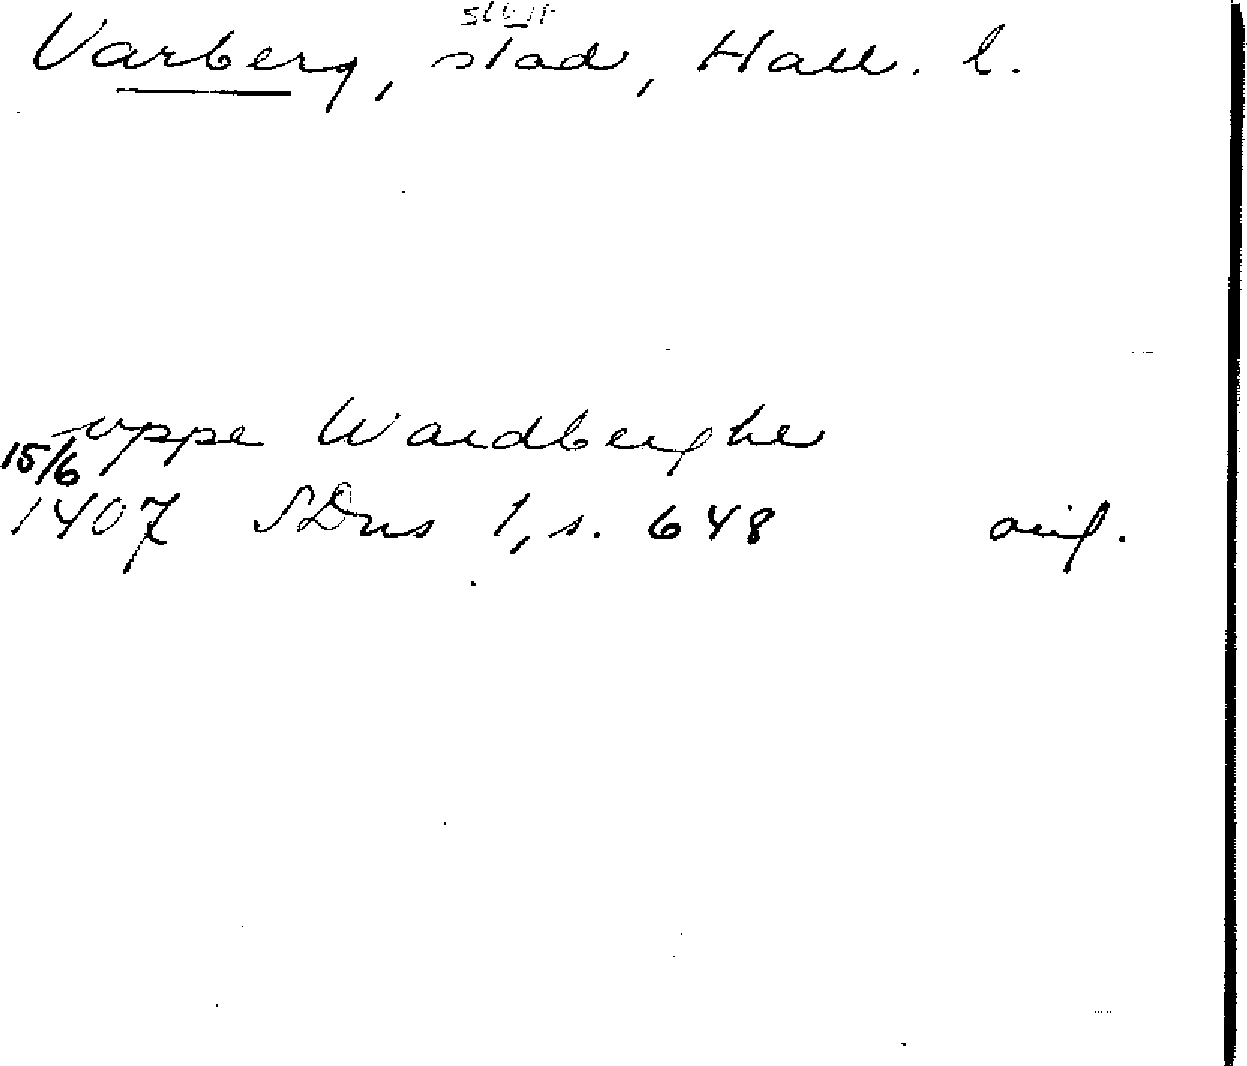 slott
Varberg, stad, Hall. l.
uppe Wardberghe
15/6
1407 SDns 1, s. 648 orig.